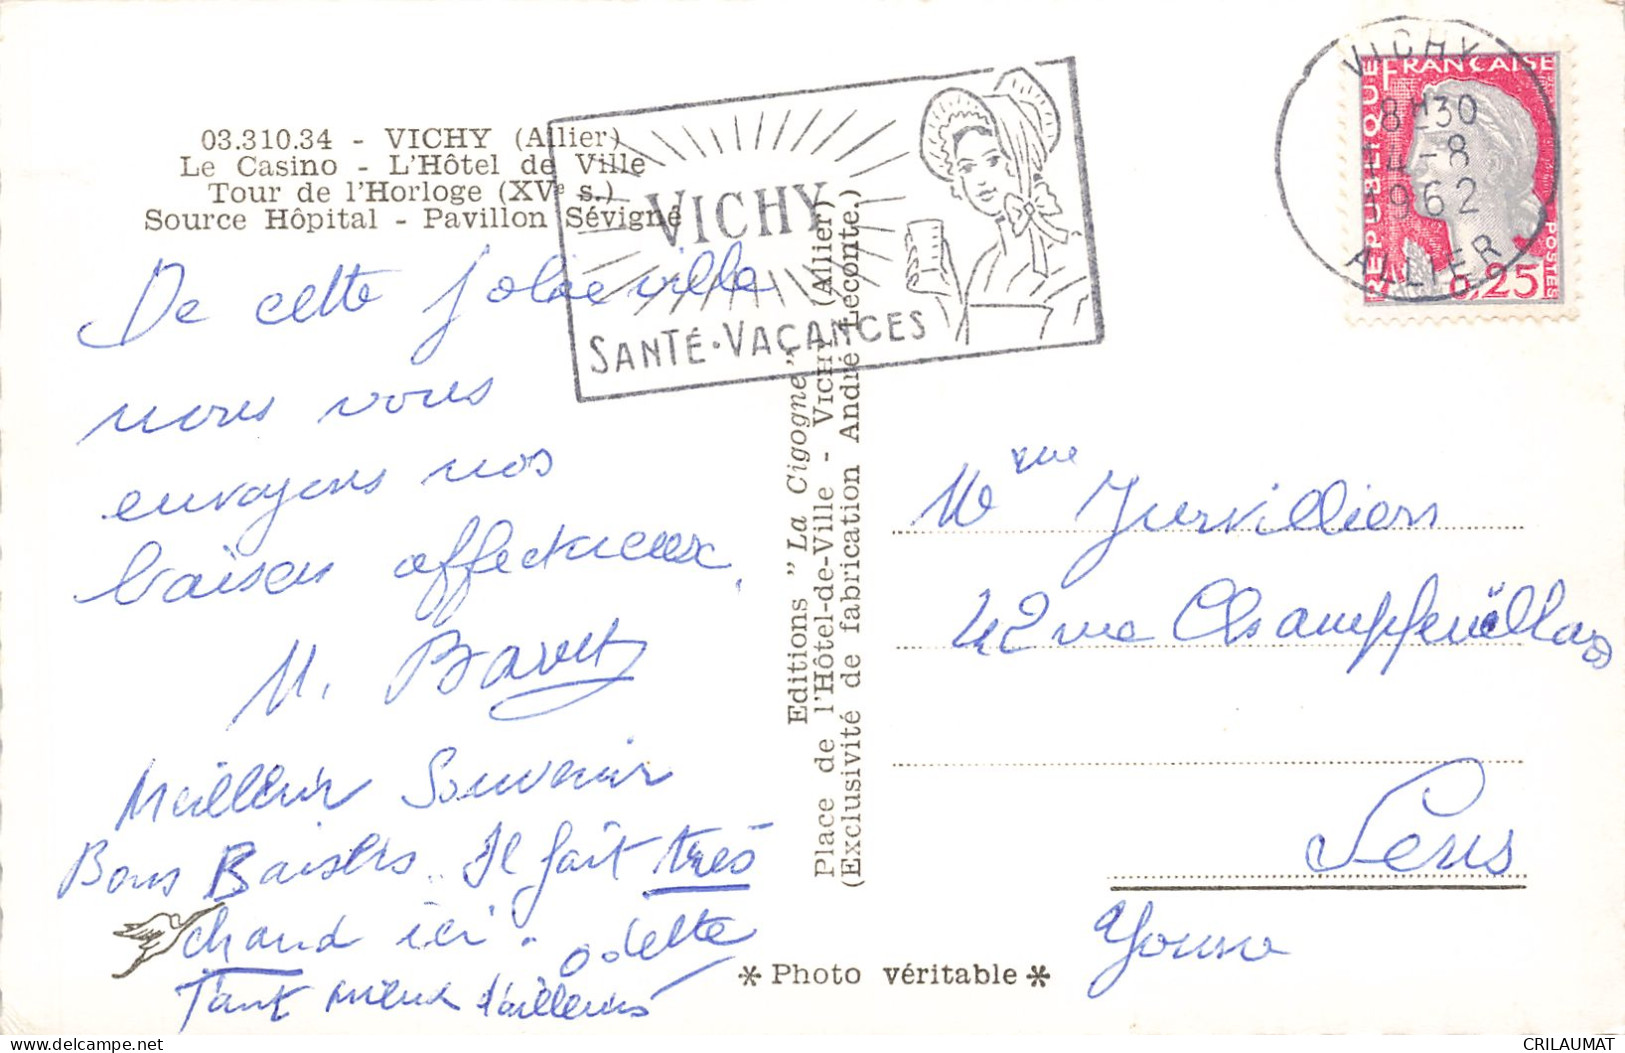 03.310.34 - VICHY (Allier)
Le Casino - L'Hôtel de Ville
Tour de l'Horloge (XVe s.)
Source Hôpital - Pavillon Sévigné
VICHY
SANTÉ • VACANCES
VICHY
8H30
4-8
1962
ALLIER
RÉPUBLIQUE FRANÇAISE
POSTES
0,25
De cette jolie ville
nous vous
envoyons nos
baisers affectueux.
M.
Meilleur Souvenir
Bons Baisers. Il fait très
chaud ici.
Odette
Tant mieux d'ailleurs
Editions "La Cigogne"
Place de l'Hôtel-de-Ville - VICHY (Allier)
(Exclusivité de fabrication André Leconte.)
Mme
42 rue
Sens
Yonne
* Photo véritable *
delcampe.net
CRILAUMAT